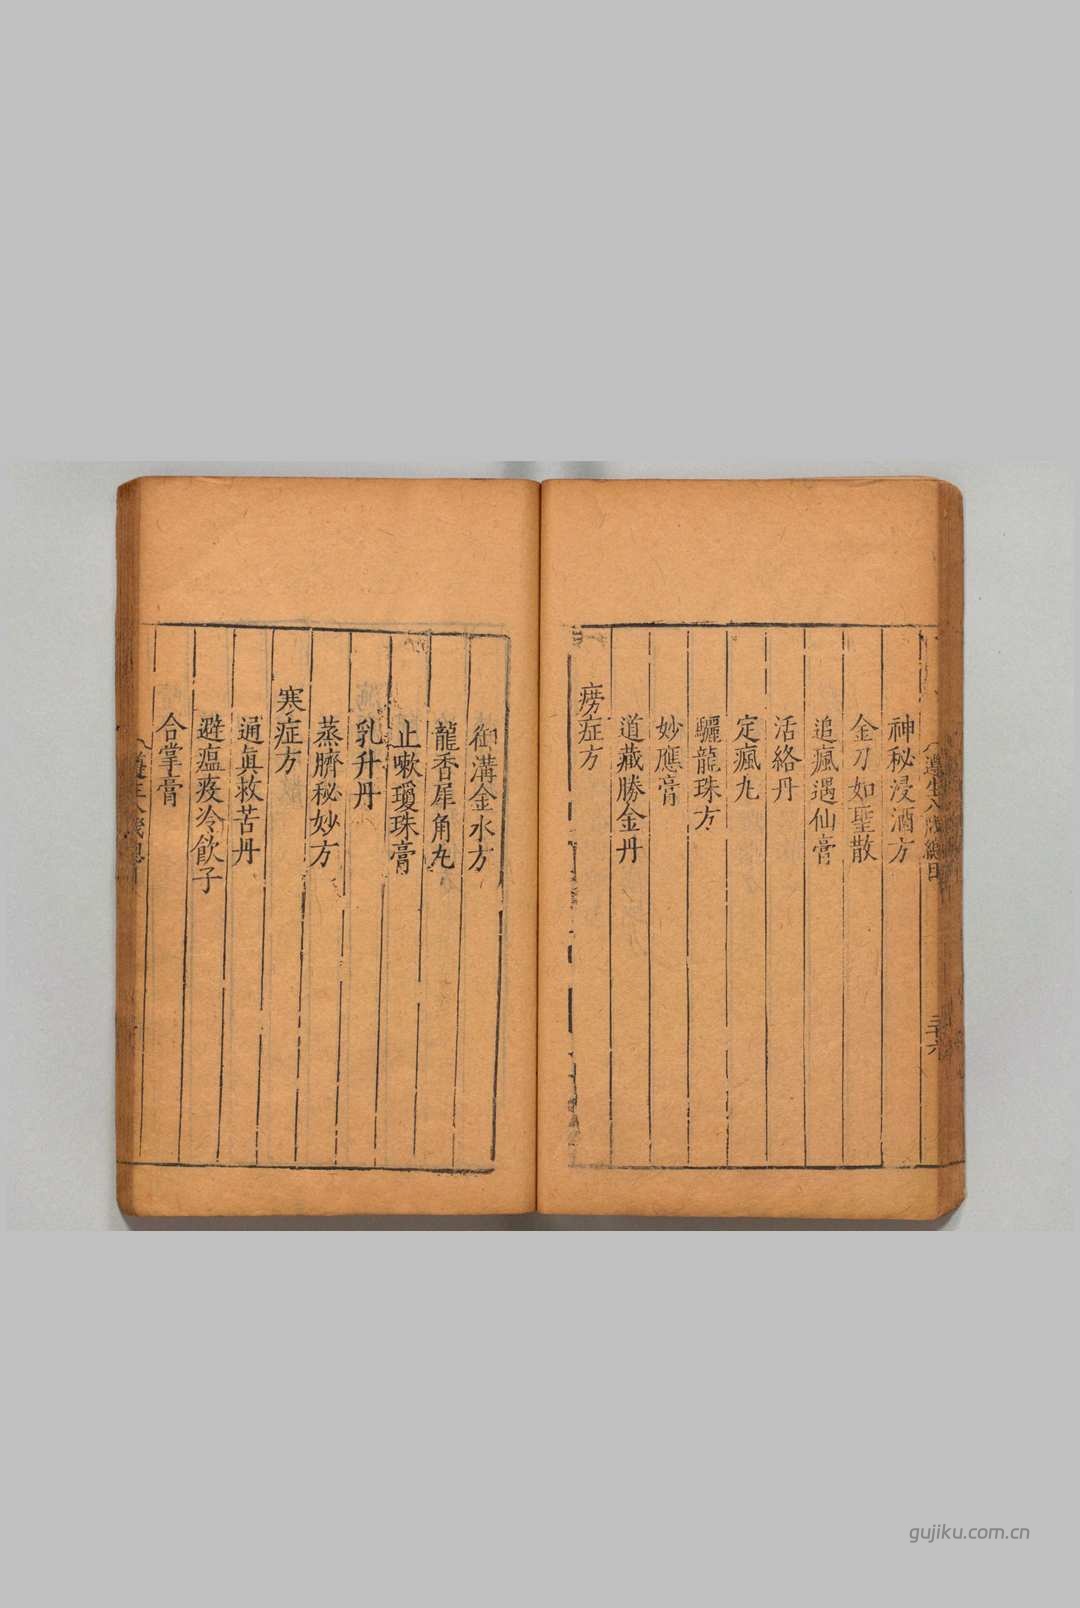 神秘浸酒方
金刀如聖散
追瘋遇仙膏
活絡丹
定瘋丸
驪龍珠方
妙應膏
道藏勝金丹
癆症方
御溝金水方
龍香犀角丸
止嗽瓊珠膏
乳升丹
蒸臍秘妙方
寒症方
通眞救苦丹
避瘟疫冷飲子
合掌膏
gujiku.com.cn